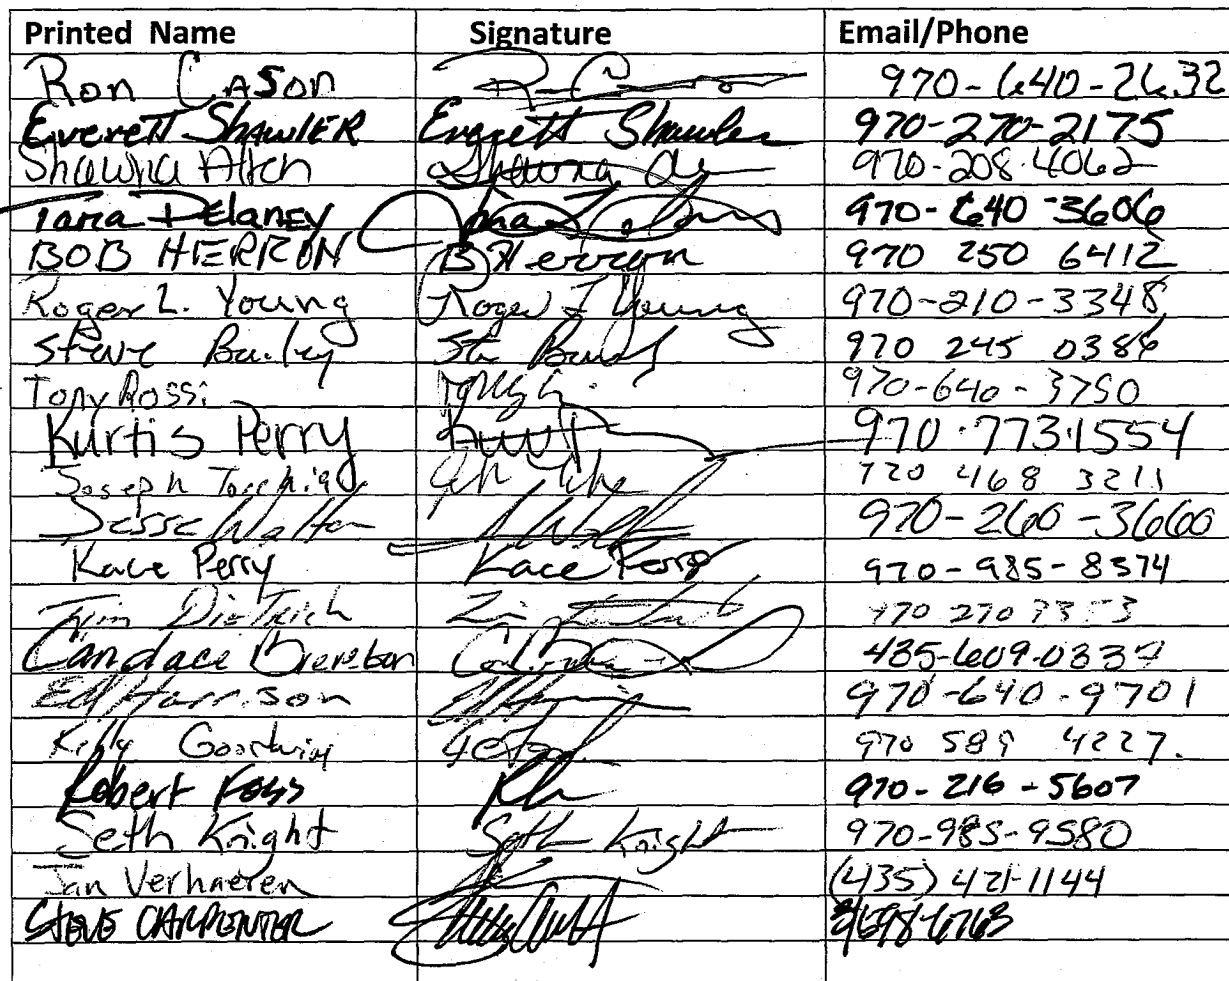 Printed Name Signature Email/Phone
Ron Cason R Cason 970-640-2632
Everett Shawler Everett Shawler 970-270-2175
Shawna Shawna 970-208-4062
Tana Delaney 970-640-3606
BOB HERRON B Herron 970 250 6412
Roger L. Young Roger L Young 970-210-3348
Steve Bailey 970 245 0386
Tony Rossi 970-640-3750
Kurtis Perry 970-773-1554
Joseph 720 468 3211
Jesse Walton 970-260-3660
Kace Perry Kace Perry 970-985-8574
Dietrich 970 270
Candace Brereton 435-609-0337
Ed Harrison 970-640-9701
Kelly Goodwin 970 589 4227.
Robert Foss 970-216-5607
Seth Knight Seth Knight 970-985-9580
Jan Verhaeren (435) 421-1144
STEVE CARPENTER